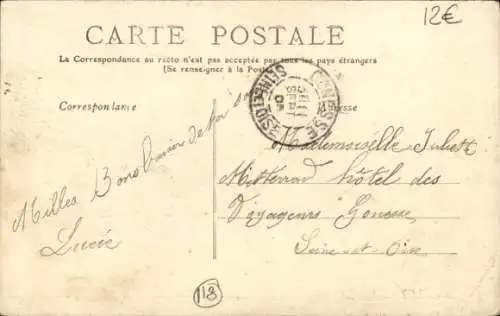 12€
CARTE POSTALE
La Correspondance au recto n'est pas acceptée par tous les pays étrangers
(Se renseigner à la Poste)
Correspondance
Adresse
GONESSE
SEINE-ET-OISE
Milles Bons baisers de ta
Lucie
Mademoiselle Juliette
Mitterran hôtel des
Voyageurs Gonesse
Seine-et-Oise
118